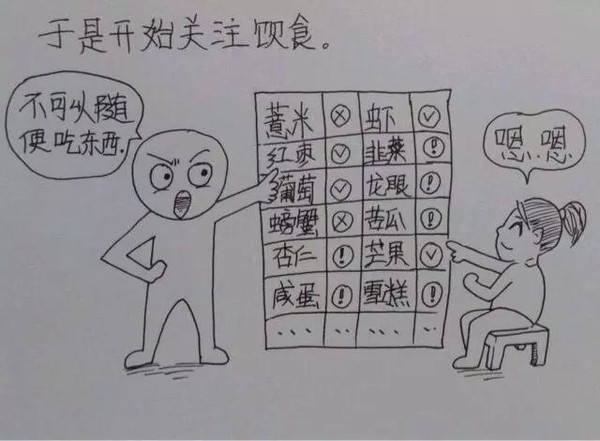 于是开始关注饮食。
不可以随
便吃东西.
嗯.嗯
薏米 ⊗ 虾 ✓
红枣 ✓ 韭菜 !
葡萄 ✓ 龙眼 !
螃蟹 ⊗ 苦瓜 !
杏仁 ! 芒果 ✓
咸蛋 ! 雪糕 !
.... .. .... ..